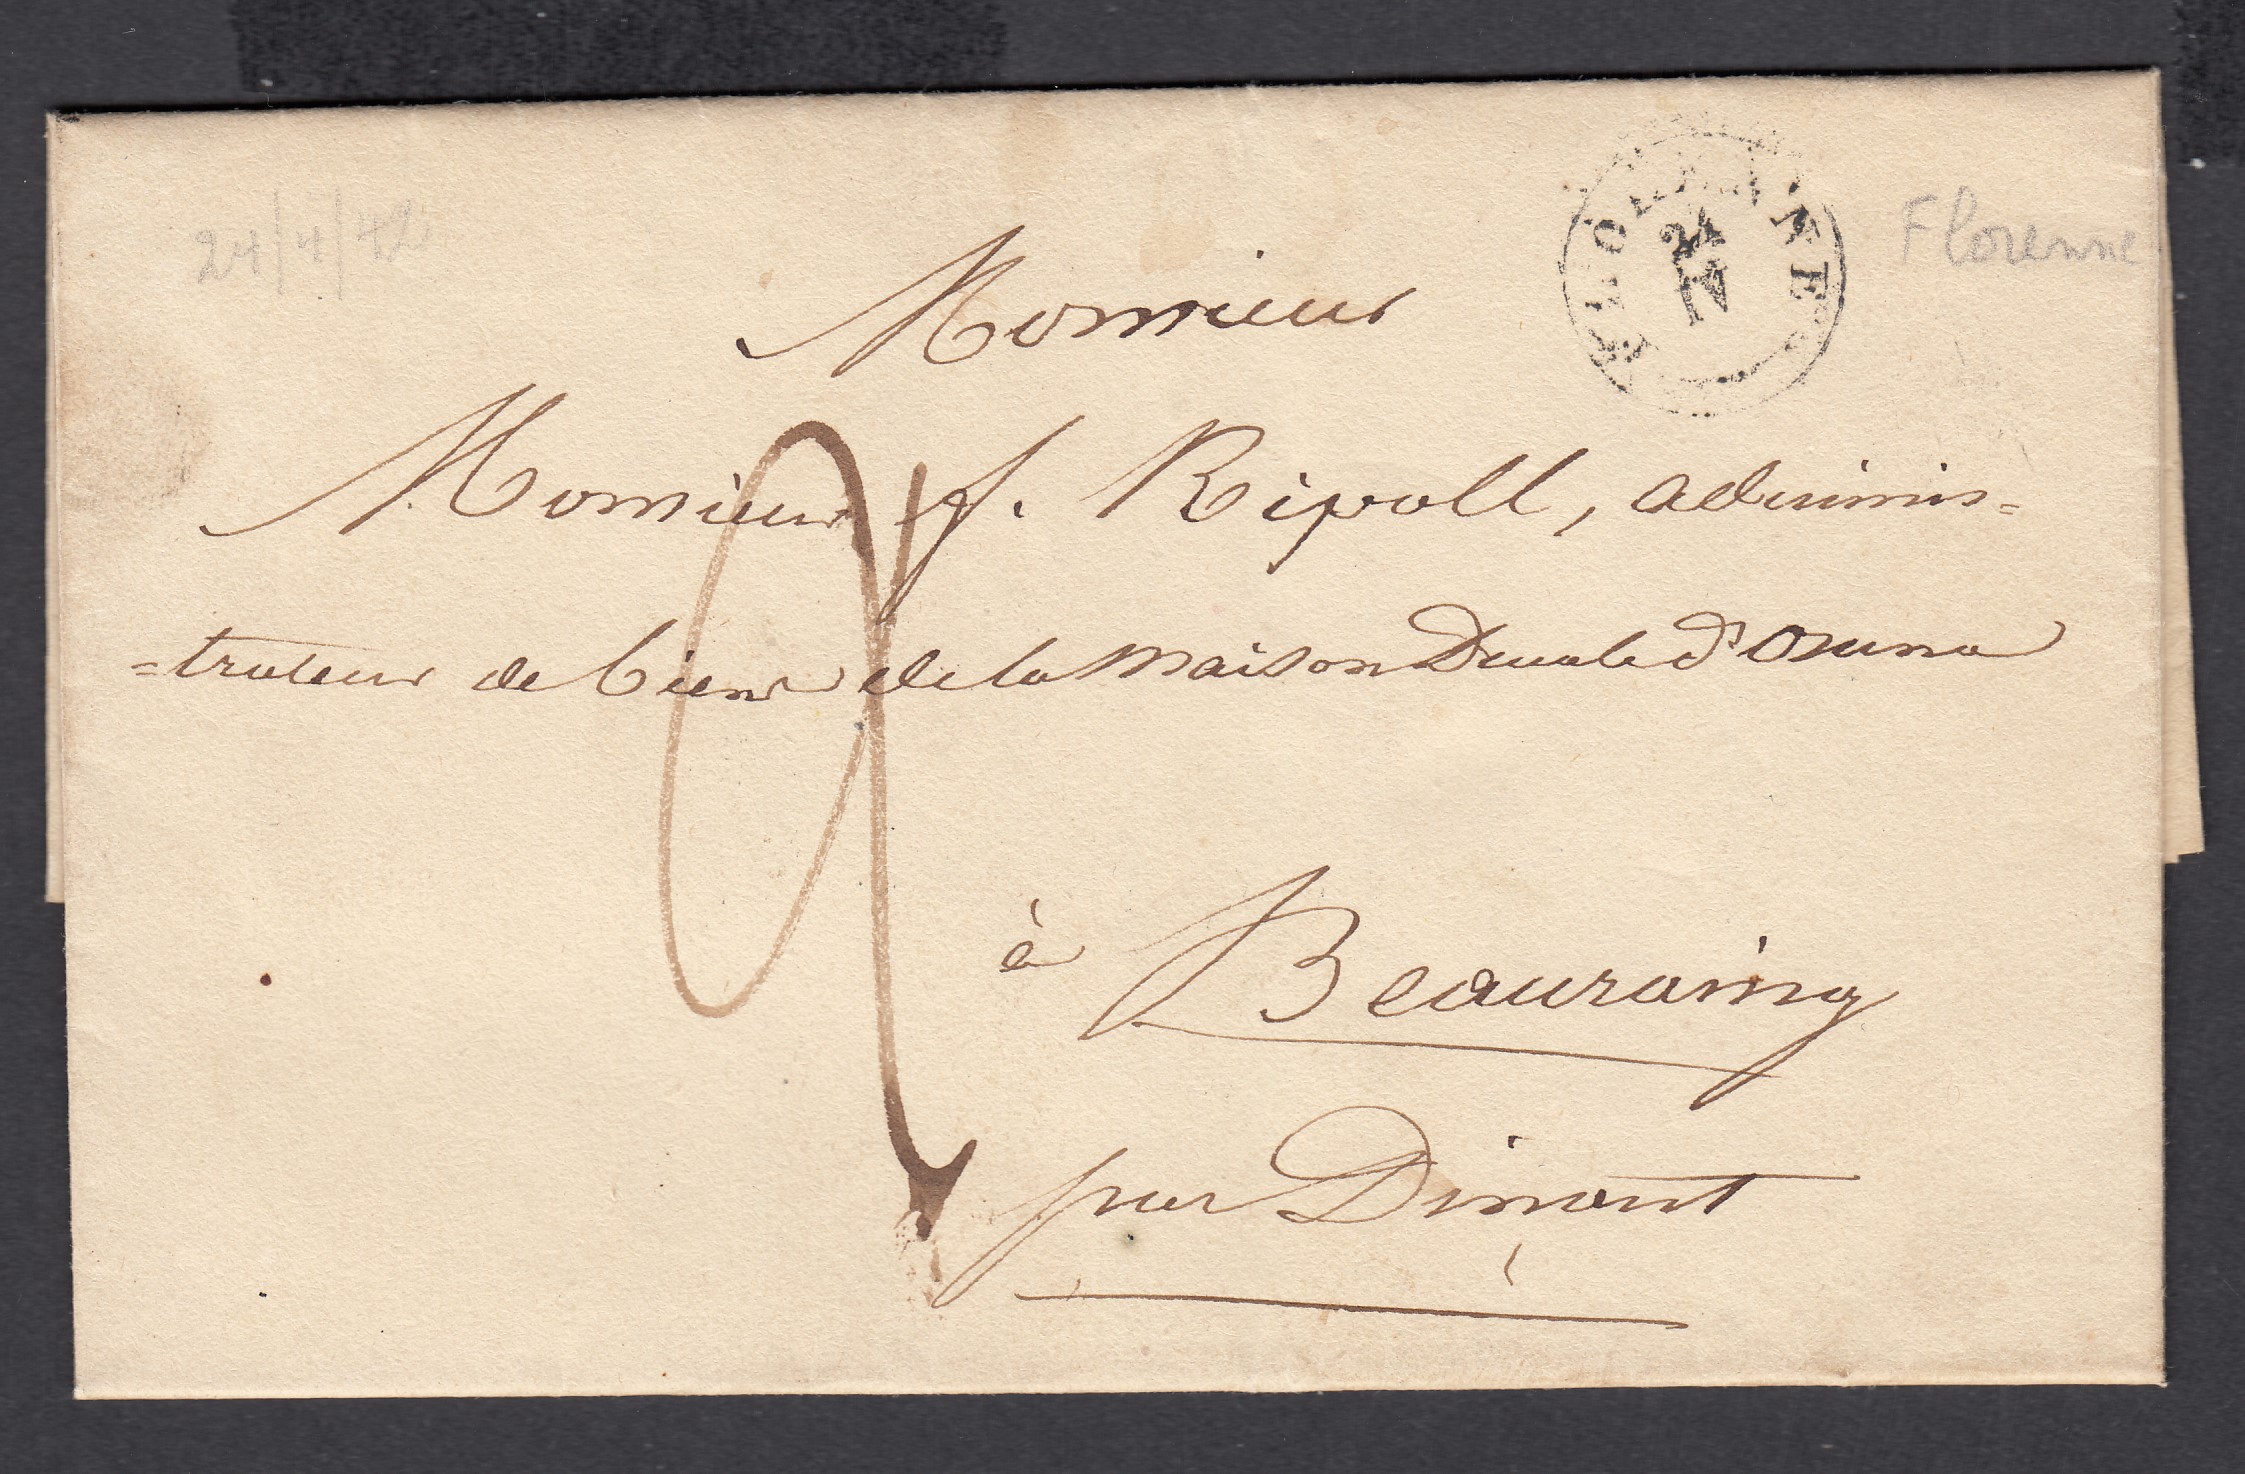 24/4/42
Monsieur
FLORENNES
24
IV
Florenne
Monsieur f. Ripoll, adminis=
=trateur de biens de la Maison Ducale d'Osuna
2
à Beauraing
par Dinant